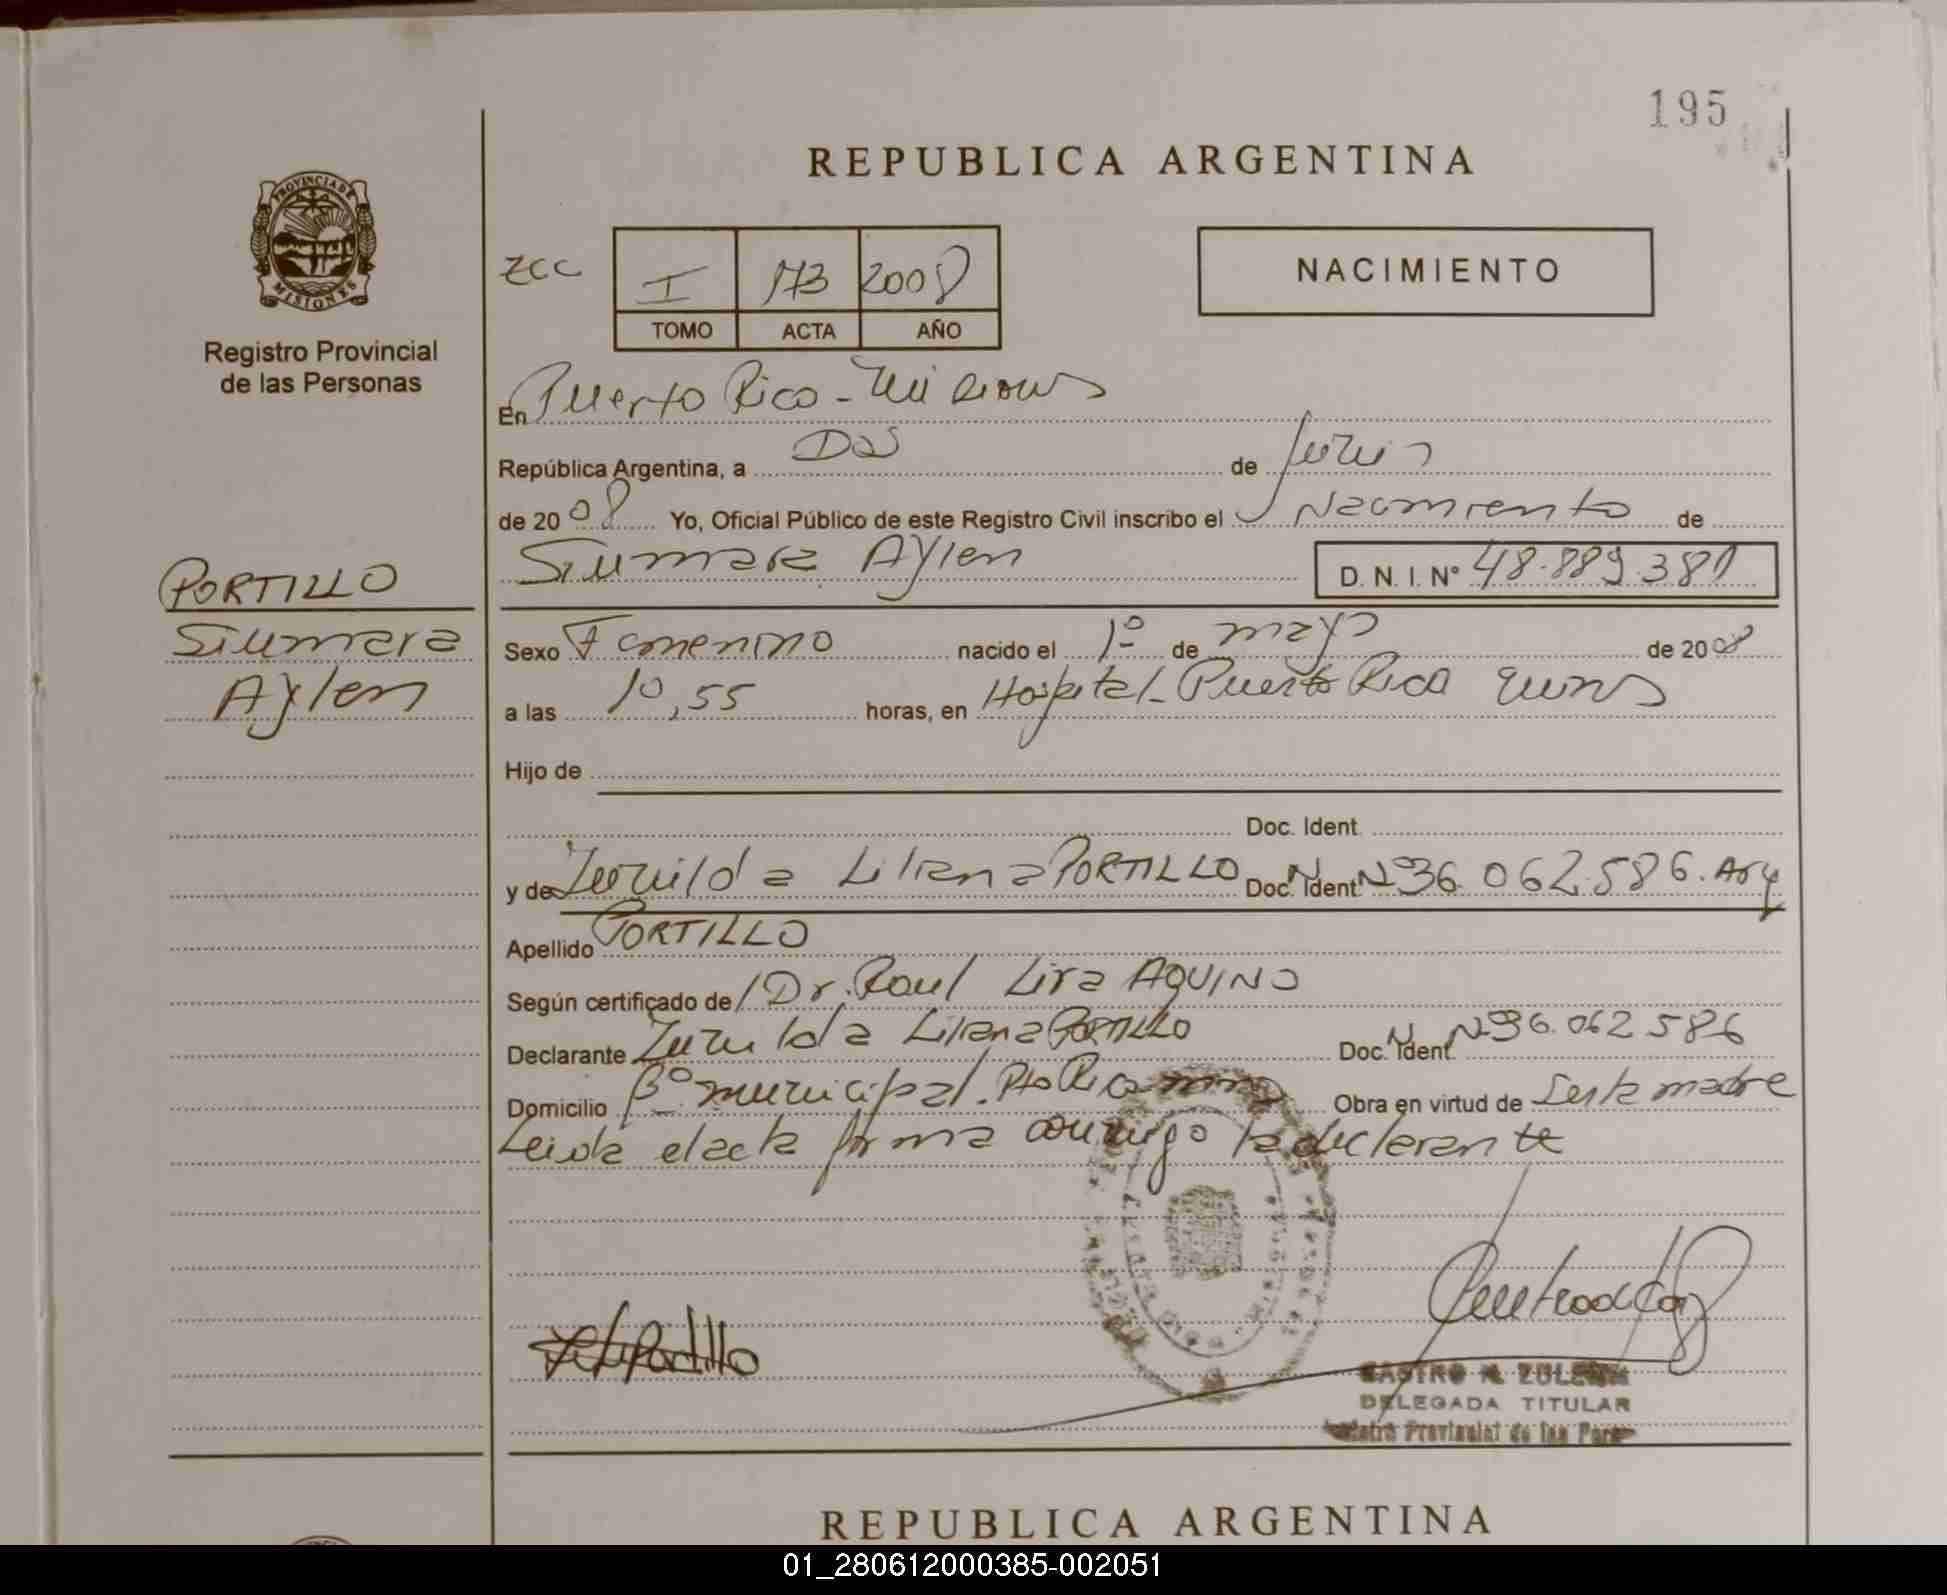 195
REPUBLICA ARGENTINA
PROVINCIA DE
MISIONES
Registro Provincial
de las Personas
ZCC
I 173 2008
TOMO ACTA AÑO
NACIMIENTO
En Puerto Rico - Misiones
República Argentina, a Dos de Junio
de 2008 Yo, Oficial Público de este Registro Civil inscribo el Nacimiento de
Siumara Aylen D. N. I. Nº 48.889.381
PORTILLO
Siumara
Aylen
Sexo Femenino nacido el 1º de mayo de 2008
a las 10,55 horas, en Hospital - Puerto Rico
Hijo de
Doc. Ident.
y de Liliana PORTILLO Doc. N. Ident Nº 36.062.586. Arg
Apellido PORTILLO
Según certificado de Dr. Raul Lira AQUINO
Declarante Liliana PORTILLO Doc. N. Ident. Nº 36.062586
Domicilio Bº municipal. Pto Rico Obra en virtud de Ser la madre
Leida el acta firma conmigo la declarante
Portillo
CASTRO N. ZULEMA
DELEGADA TITULAR
Provincial de las Pers
REPUBLICA ARGENTINA
01_280612000385-002051